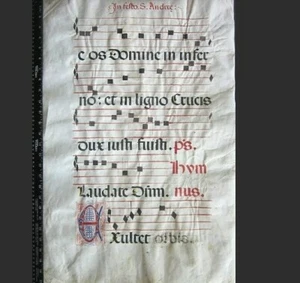 In festo S. Andree:
e os Domine in infer
no: et in ligno Crucis
dux iusti fuisti. ps.
Hym
Laudate Dñm. nus.
Exultet orbis.